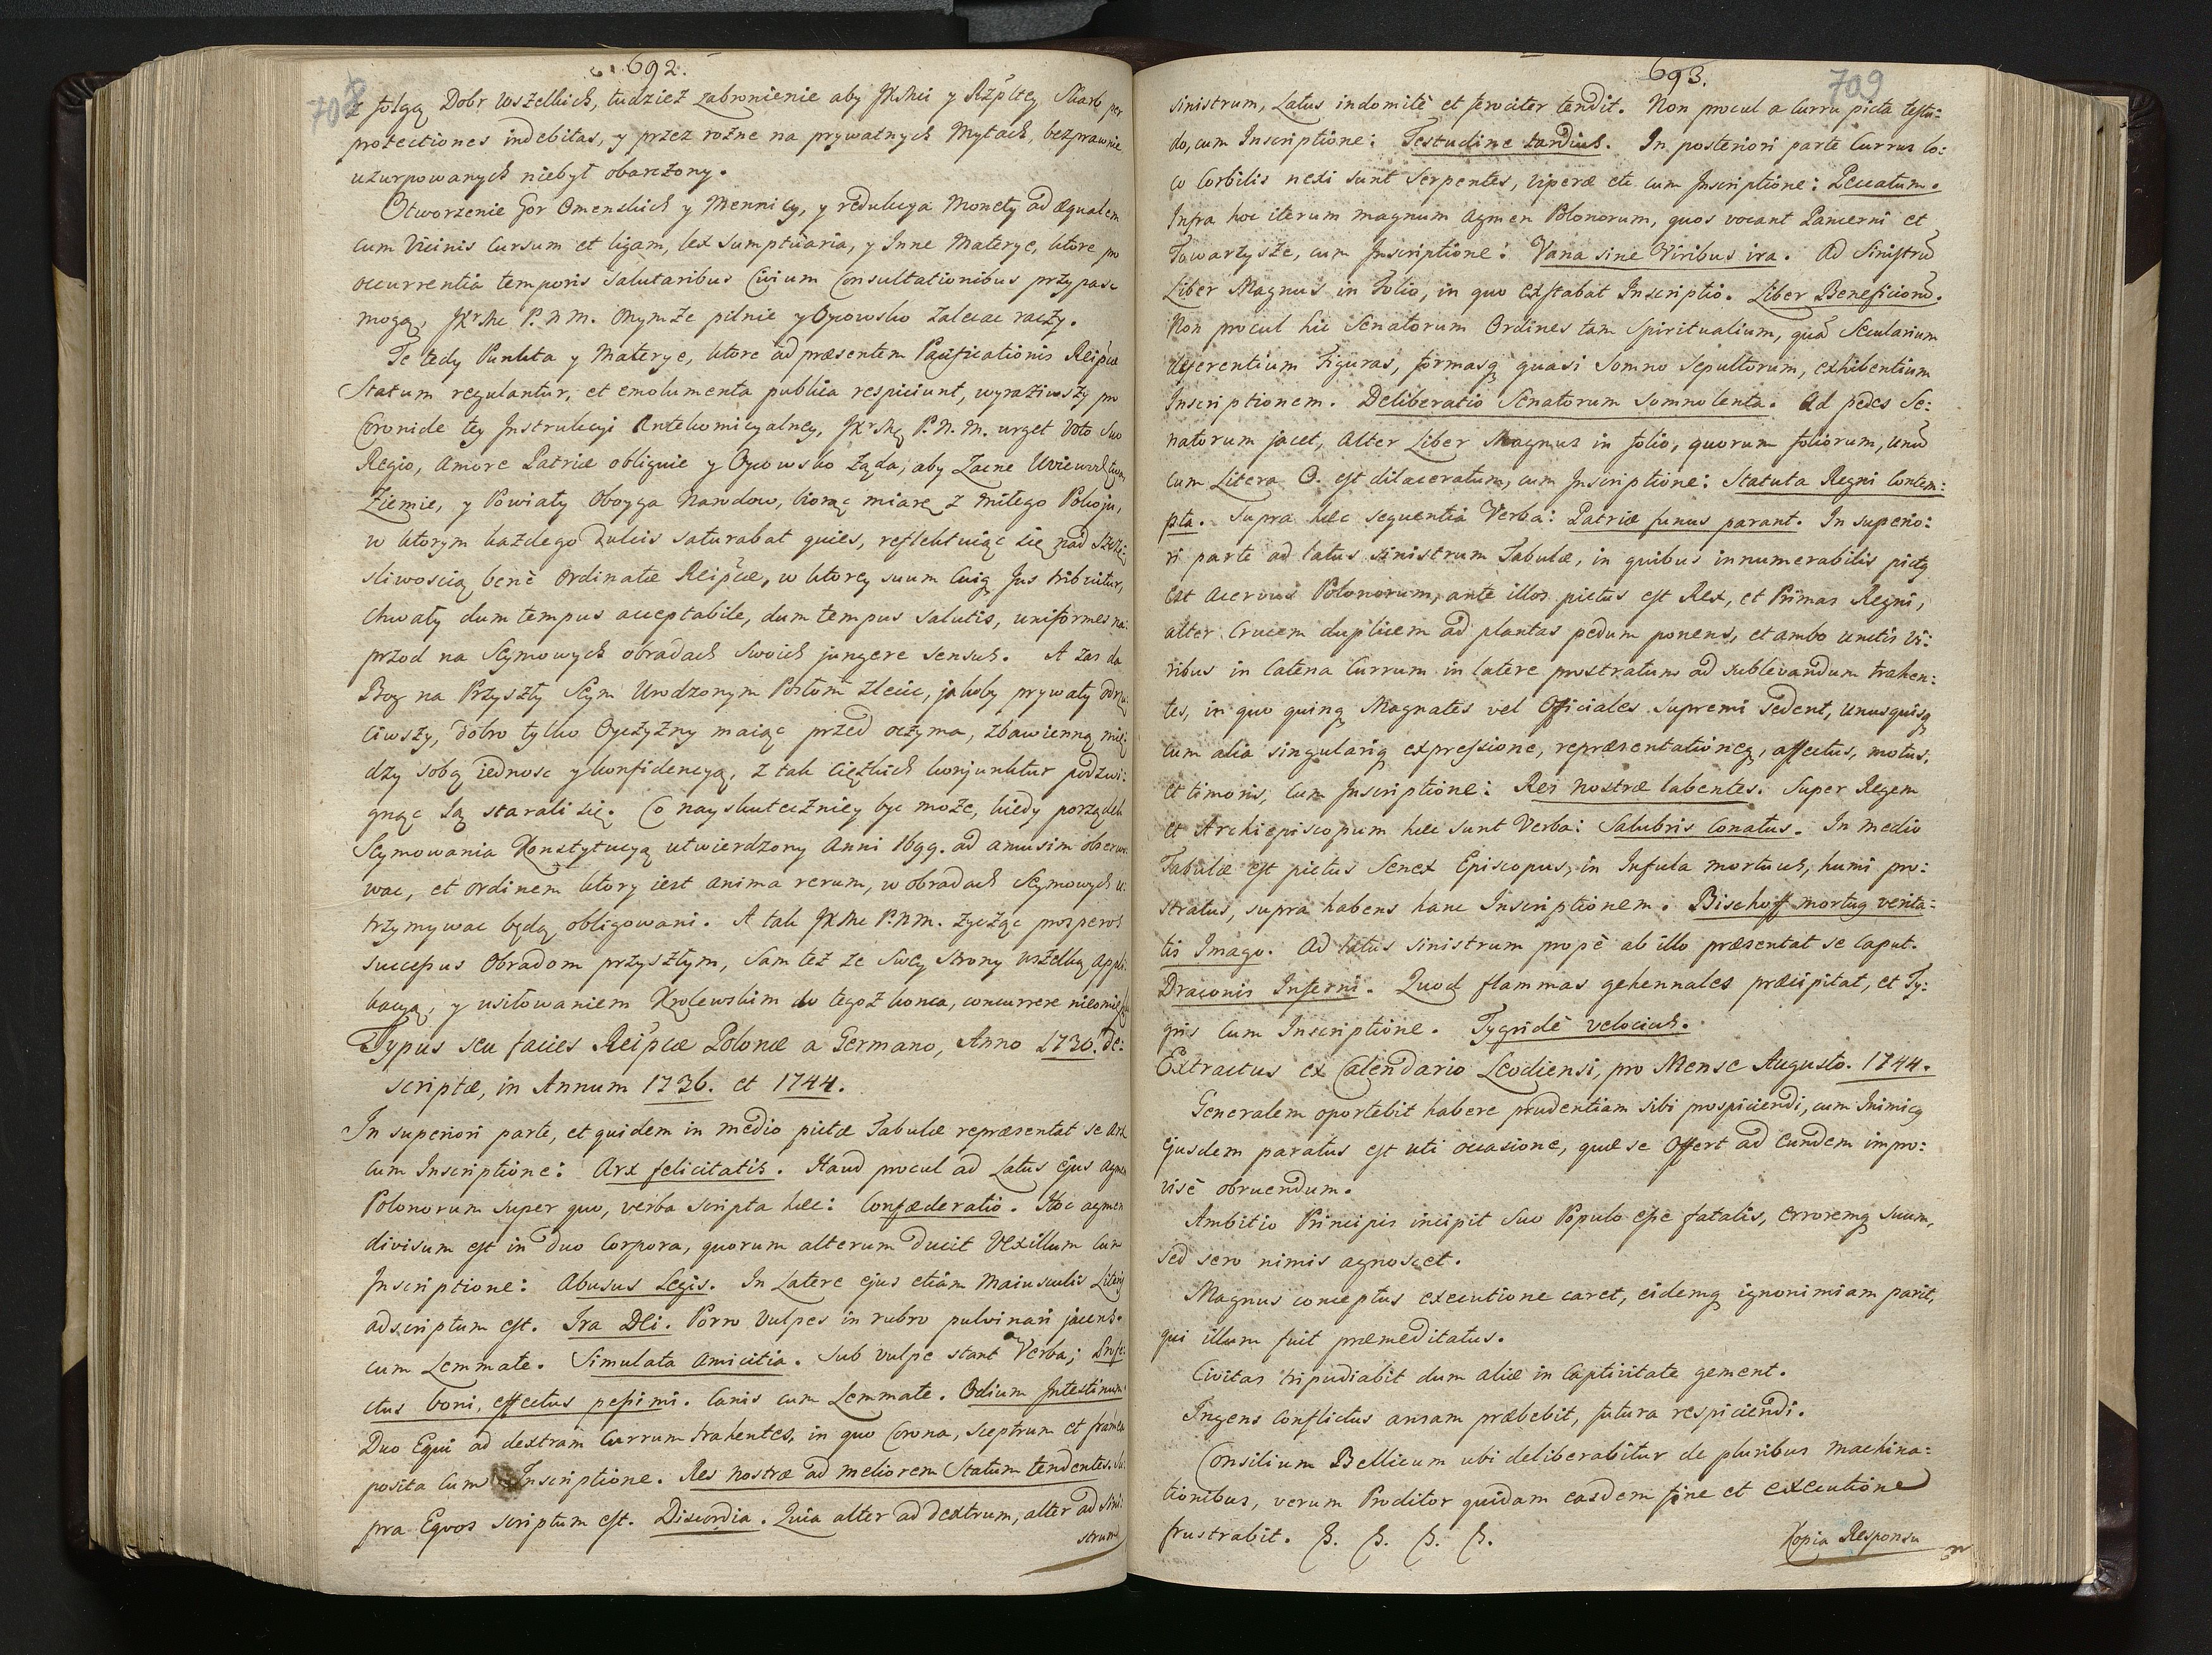 692.
708
z folgą Dobr wszelkich, tudziesz zabronienie aby JKMci y Rzpltey Skarb per
protectiones indebitas, y przez rożne na prywatnych Mytach, bezprawnie
uzurpowanych niebył obarczony.
Otworzenie Gor Omenskich y Mennicy, y redukcya Monety ad æqualem
cum Vicinis Cursum et ligam, lex sumptuaria, y Inne Materye, ktore pro
occurrentia temporis salutaribus Civium Consultationibus przypasc
mogą, JKrMc P. N M. onymże pilnie y Oycowsko zalecac raczy.
Te tedy Punkta y Materye, ktore ad præsentem Pacificationis Reipcæ
Statum regulantur, et emolumenta publica respiciunt, wyraziwszy pro
Coronide tey Instrukcyi Antekomicyalney, JKrMc P. N. M. urget voto suo
Regio, amore Patriæ obliguie y Oycowsko żąda, aby Zacne Wiewdztwa,
Ziemie, y Powiaty Oboyga Narodow, biorąc miarę z miłego Pokoju,
w ktorym każdego dulcis saturabat quies, reflektuiąc się nad szczę:
sliwoscią benè Ordinatæ Reipcæ, w ktorey suum Cuiq Jus tribuitur,
chwały dum tempus acceptabile, dum tempus salutis, uniformes na:
przod na Seymowych obradach swoich jungere sensus. A zas da
Bog na Przyszły Seym Urodzonym Posłom zlecic, jakoby prywaty odrzu:
ciwszy, dobro tylko Oyczyzny maiąc przed oczyma, zbawienną mię:
dzy sobą iednosc y konfidencyą, z tak ciężkich konjunktur podzwi:
gnąc Ią starali się. Co nayskuteczniey byc może, kiedy porządek
Seymowania Konstytucyą utwierdzony Anni 1699. ad amusim obserwo:
wac, et ordinem ktory iest anima rerum, w obradach Seymowych u:
trzymywac będą obligowani. A tak JKMc P. N M. życząc prosperos
succesus Obradom przyszłym, sam też ze swey strony wszelką appli:
kacyą, y usiłowaniem Krolewskim do tegoż konca, concurrere nieomieszka
Typus seu facies Reipcæ Polonæ a Germano, Anno 1730. de:
scriptæ, in Annum 1736. et 1744.
In superiori parte, et quidem in medio pictæ Tabulæ repræsentat se Arx
cum Inscriptione: Arx felicitatis. Haud procul ad Latus ejus agmen
Polonorum super quo, verba scripta hæc: Confæderatio. Hoc agmen
divisum est in duo Corpora, quorum alterum ducit Vexillum cum
Inscriptione: Abusus Legis. In Latere ejus etiam maiusculis Literis
adscriptum est. Ira Dei. Porro Vulpes in rubro pulvinari jacens.
cum Lemmate. Simulata amicitia. Sub vulpe stant Verba; Profe:
ctus boni, effectus pessimi. Canis cum Lemmate. Odium Intestinum.
Duo Equi ad dextram Currum trahentes, in quo Corona, sceptrum et framea
posita cum Inscriptione. Res nostræ ad meliorem Statum tendentes. Su:
pra Equos scriptum est. Discordia. Quia alter ad dextrum, alter ad sini:
strum
693.
709
sinistrum, Latus indomitè et ferociter tendit. Non procul a curru picta testu:
do, cum Inscriptione: Testudine tardius. In posteriori parte Currus lo:
co Corbilis nexi sunt Serpentes, Viperæ etc. cum Inscriptione: Peccatum.
Infra hoc iterum magnum agmen Polonorum, quos vocant Pancerni et
Towarzysze, cum Inscriptione: Vana sine Viribus ira. Ad Sinistrũ
Liber Magnus in Folio, in quo exstabat Inscriptio. Liber Beneficiorũ.
Non procul hic Senatorum Ordines tam Spiritualium, quã Secularium
referentium Figuras, formasq quasi somno sepultorum, exhibentium
Inscriptionem. Deliberatio Senatorum somnolenta. Ad pedes Se:
natorum jacet, Alter Liber Magnus in folio, quorum foliorum, unũ
cum Litera O. est dilaceratum, cum Inscriptione: Statuta Regni Contem:
pta. Supra hæc sequentia Verba: Patriæ funus parant. In superio:
ri parte ad latus sinistrum Tabulæ, in quibus innumerabilis pictq
est acervus Polonorum, ante illos pictus est Rex, et Primas Regni,
alter Crucem duplicem ad plantas pedum ponens, et ambo unitis vi:
ribus in Catena Currum in latere prostratum ad sublevandum trahen:
tes, in quo quinq Magnates vel Officiales Supremi sedent, unusquisq
cum alia singulariq expressione, repræsentationeq, affectus, motus,
et timoris, cum Inscriptione: Res nostræ labentes. Super Regem
et Archiepiscopum hæc sunt Verba: Salubris Conatus. In medio
Tabulæ est pictus Senex Episcopus, in Infula mortuus, humi pro:
stratus, supra habens hanc Inscriptionem. Bischoff mortuq verita:
tis Imago. Ad latus sinistrum propè ab illo præsentat se Caput.
Draconis Inferni. Quod flammas gehennales præcipitat, et Ty:
gris cum Inscriptione. Tygridè velocius.
Extractus ex Calendario Leodiensi, pro Mense Augusto. 1744.
Generalem oportebit habere prudentiam sibi prospiciendi, cum Inimicq
Ejusdem paratus est uti occasione, quæ se offert ad eundem impro:
visè obruendum.
Ambitio Principis incipit suo Populo esse fatalis, erroremq suum,
sed sero nimis agnoscet.
Magnus conceptus executione caret, eidemq ignonimiam parit,
qui illum fuit præmeditatus.
Civitas tripudiabit dum aliæ in Captivitate gement.
Ingens Conflictus ansam præbebit, futura respiciendi.
Consilium Bellicum ubi deliberabitur de pluribus machina:
tionibus, verum Proditor quidam easdem fine et executione
frustrabit.
Kopia Responsu